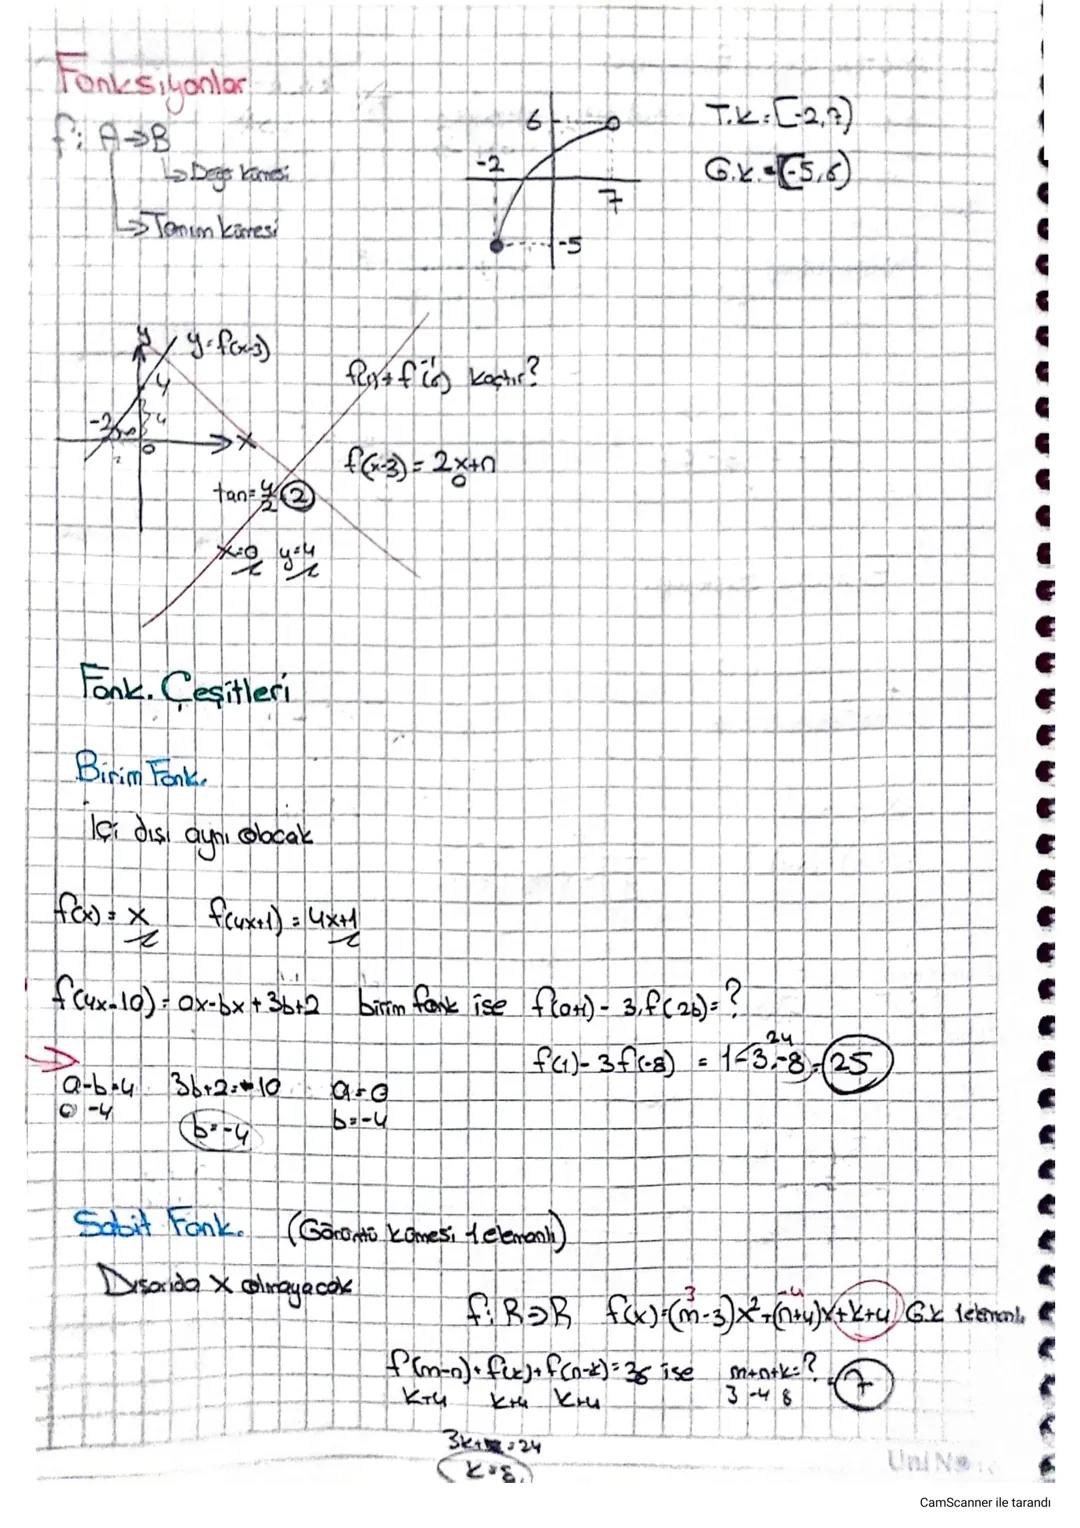 Fonksiyonlar
f: A→B
↳Değer kümesi
↳Tanım kümesi
6
-2
7
-5
T.K.=[-2,7)
G.K.=[-5,6)
y
y=f(x-3)
4
-2
4
2
0
x
f(1)+f⁻¹(6) kaçtır?
f(x-3)=2x+n
0
tan=4/2=2
x=0 y=4
Fonk. Çeşitleri
Birim Fonk.
İçi dışı aynı olacak
f(x)=x f(4x+1)=4x+1
f(4x-10)=ax-bx+3b+2 birim fonk ise f(a+1)-3.f(2b)=?
f(1)-3f(-8) = 1-3.-8=25
24
a-b=4 3b+2=-10 a=0
0 -4 b=-4 b=-4
Sabit Fonk. (Görüntü kümesi 1 elemanlı)
Dışarıda x olmayacak
3 -4
f: R→R f(x)=(m-3)x²+(n+4)x+k+4 G.K 1 elemanlı
f(m-n)+f(k)+f(n-k)=36 ise m+n+k=? 7
k+4 k+4 k+4 3 -4 8
3k=24
k=8
UniNo
CamScanner ile tarandı